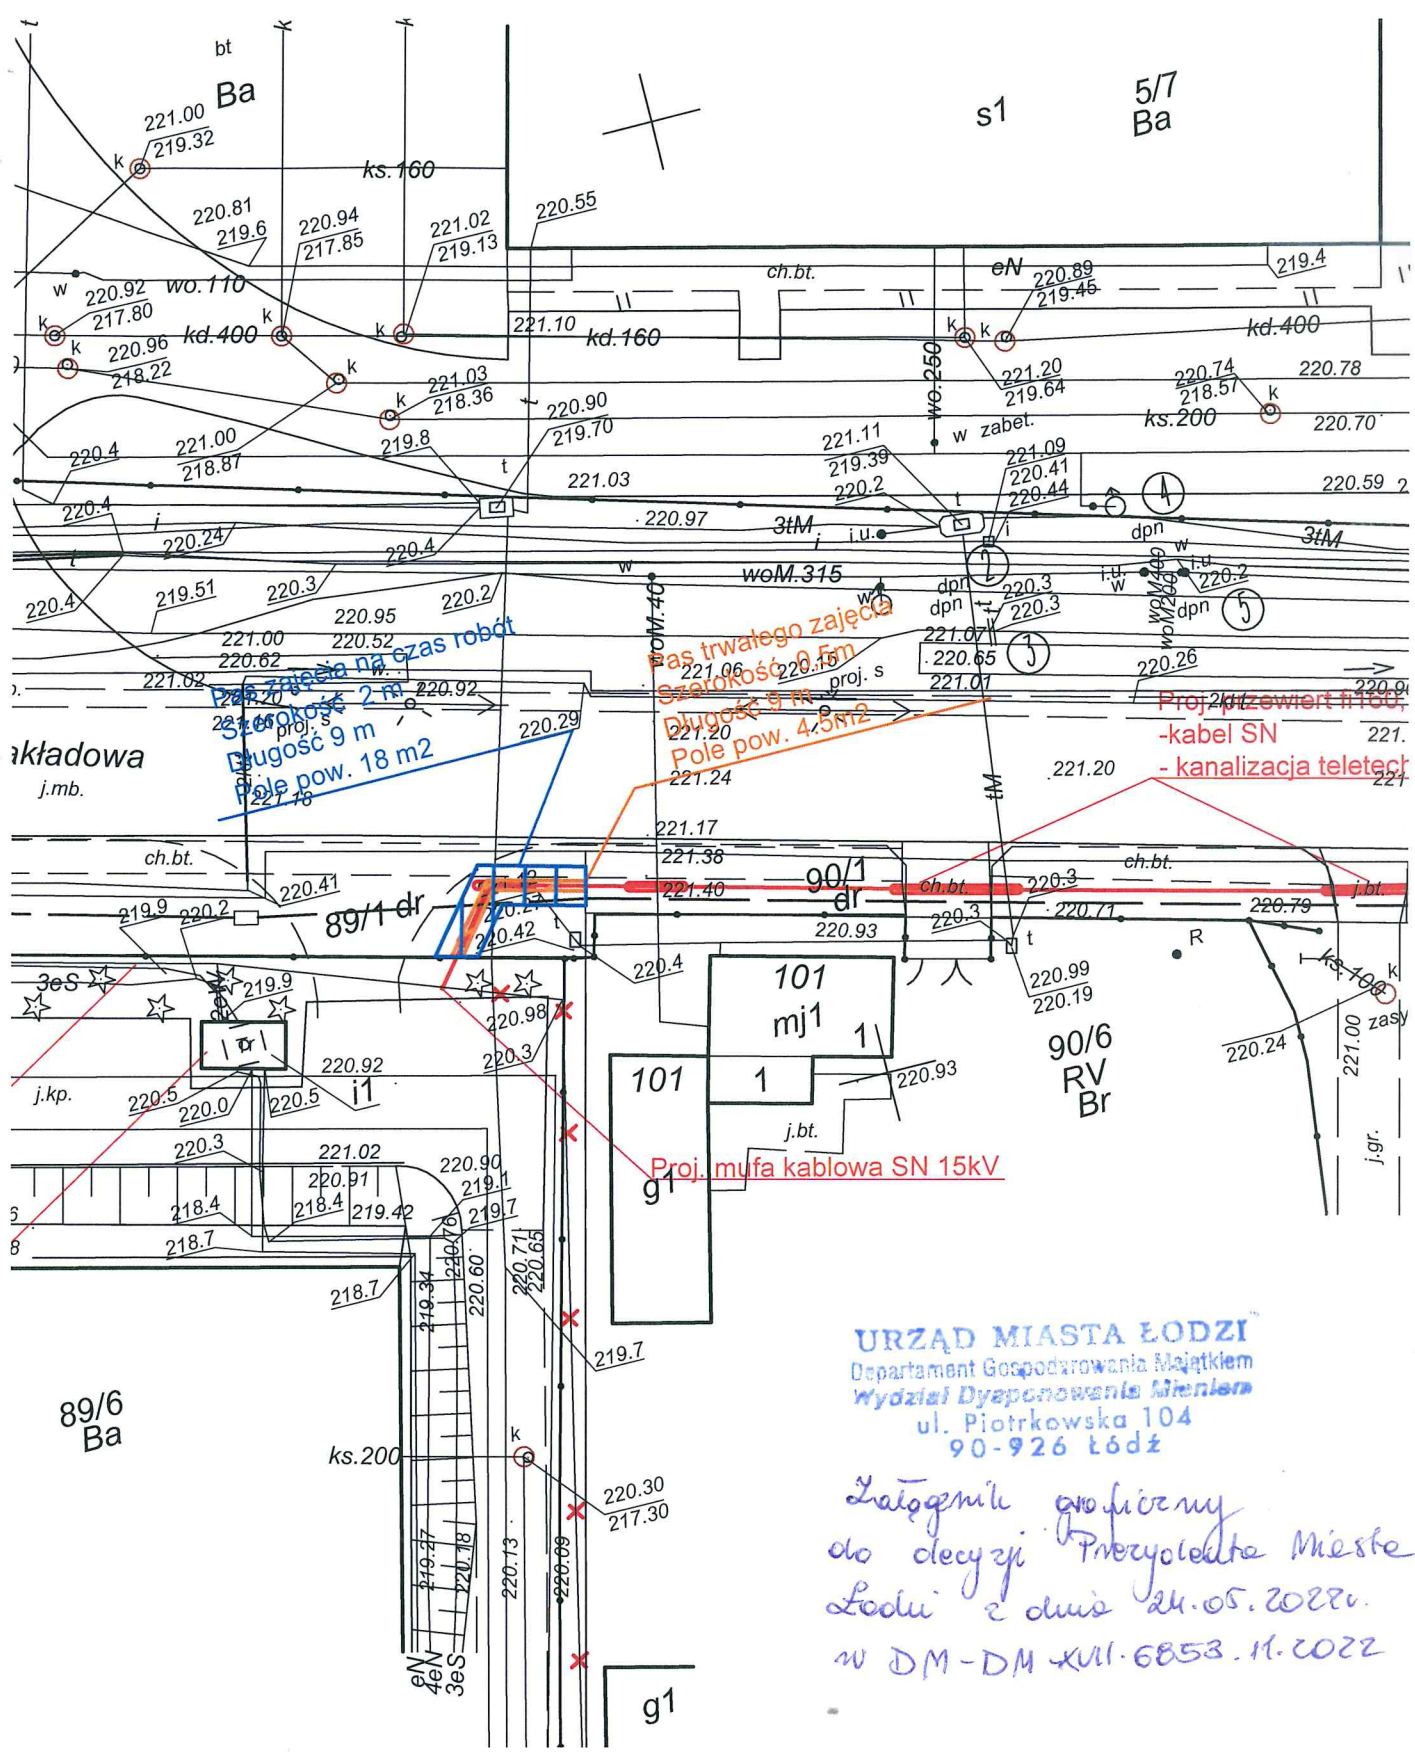 t
k
k
bt
Ba
221.00
219.32
k
ks.160
s1
5/7
Ba
220.81
219.6
220.94
217.85
221.02
219.13
220.55
w
220.92
217.80
wo.110
ch.bt.
eN
220.89
219.45
219.4
k
k
kd.400
k
221.10
kd.160
k
k
kd.400
k
220.96
218.22
k
221.03
218.36
k
t
220.90
219.70
wo.250
221.20
219.64
220.74
218.57
k
220.78
ks.200
220.70
221.00
218.87
219.8
220.4
t
221.03
221.11
219.39
220.2
w zabet.
221.09
220.41
220.44
4
220.59
220.4
i
220.24
t
220.4
220.97
3tM
i
i.u.
t
i
dpn
w
3tM
220.4
219.51
220.3
220.2
w
woM.315
w
2
dpn
dpn
220.3
220.3
i.u.
w
woM400
woM200
i.u.
220.2
dpn
5
220.95
221.00
220.52
220.62
221.02
woM.40
221.07
220.65
221.01
3
220.26
Pas zajęcia na czas robót
Szerokość 2 m
Długość 9 m
Pole pow. 18 m2
220.92
proj. s
220.29
221.18
Pas trwałego zajęcia
Szerokość 0.5m
Długość 9 m
Pole pow. 4.5m2
221.06
220.15
proj. s
221.20
221.24
Proj. przewiert fi160,
-kabel SN
- kanalizacja teletech
221.
221
akładowa
j.mb.
tM
221.20
221.17
221.38
221.40
ch.bt.
220.41
219.9
220.2
89/1 dr
220.42
t
220.4
90/1
dr
ch.bt.
220.93
220.3
220.3
t
ch.bt.
220.71
220.79
j.bt.
R
3eS
219.9
220.98
220.3
101
mj1
1
220.99
220.19
90/6
RV
Br
ks.100
k
zasy
220.24
221.00
j.kp.
220.5
220.0
220.5
220.92
i1
101
1
220.93
j.bt.
j.gr.
220.3
221.02
220.91
218.4
218.4
219.42
220.90
219.1
219.7
Proj. mufa kablowa SN 15kV
g1
218.7
218.7
219.34
220.76
220.60
220.71
220.65
219.7
89/6
Ba
ks.200
k
220.30
217.30
219.27
220.18
220.13
220.09
eN
4eN
3eS
g1
URZĄD MIASTA ŁODZI
Departament Gospodarowania Majątkiem
Wydział Dysponowania Mieniem
ul. Piotrkowska 104
90-926 Łódź
Załącznik graficzny
do decyzji Prezydenta Miasta
Łodzi z dnia 24.05.2022r.
w DM-DM-XVII.6853.11.2022